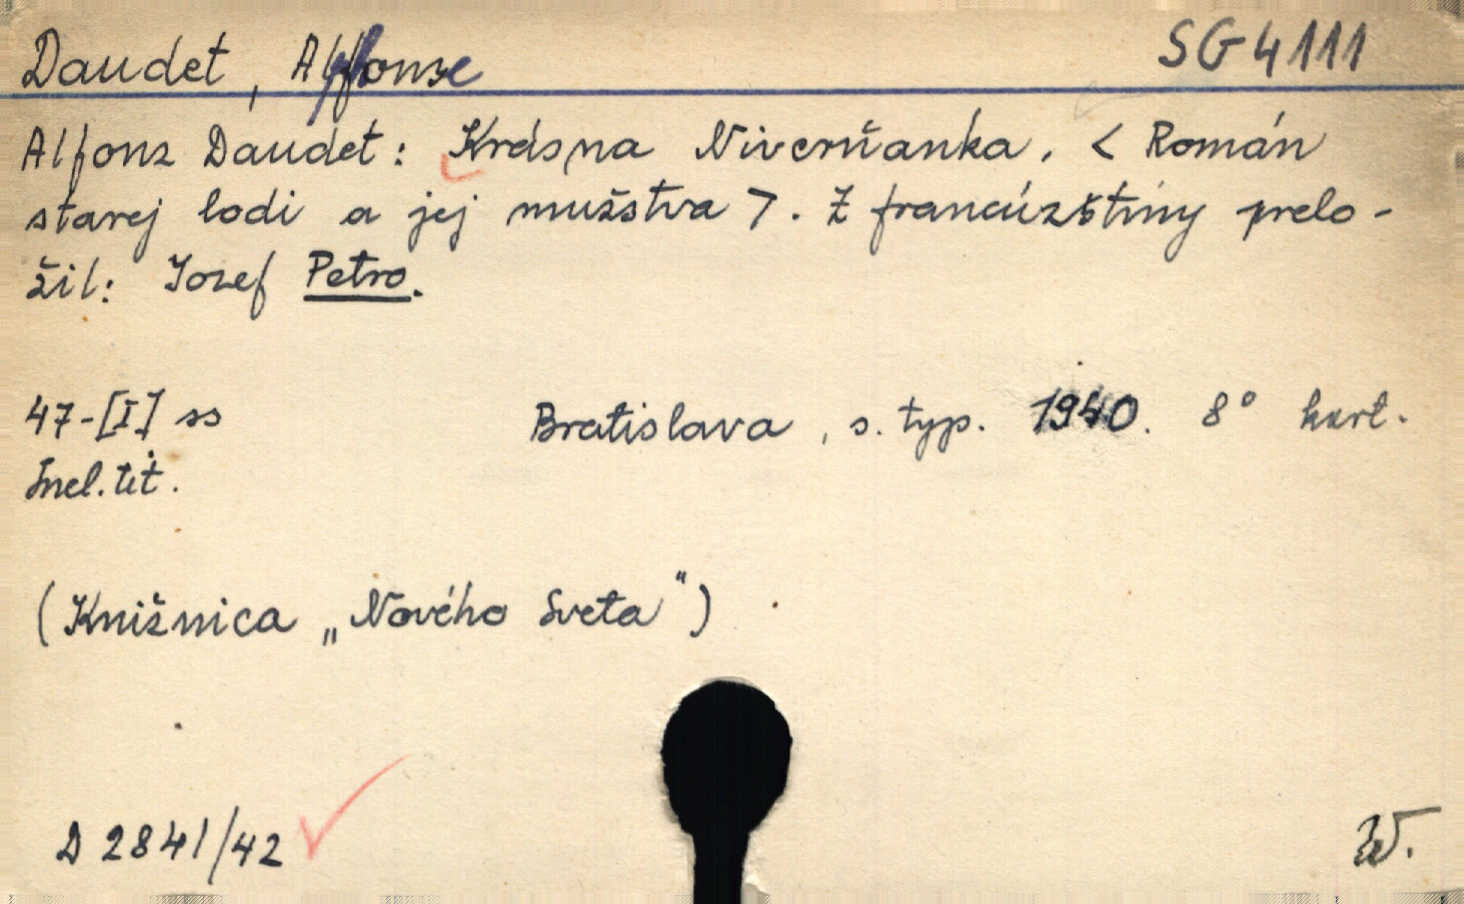 Daudet, Alphonse SG4111
Alfonz Daudet: Krásna Niverňanka. < Román
starej lodi a jej mužstva >. Z francúzštiny prelo-
žil: Jozef Petro.
47-[I] ss Bratislava, s. typ. 1940. 8° kart.
Incl. tit.
(Knižnica „Nového Sveta")
D 2841/42 W.